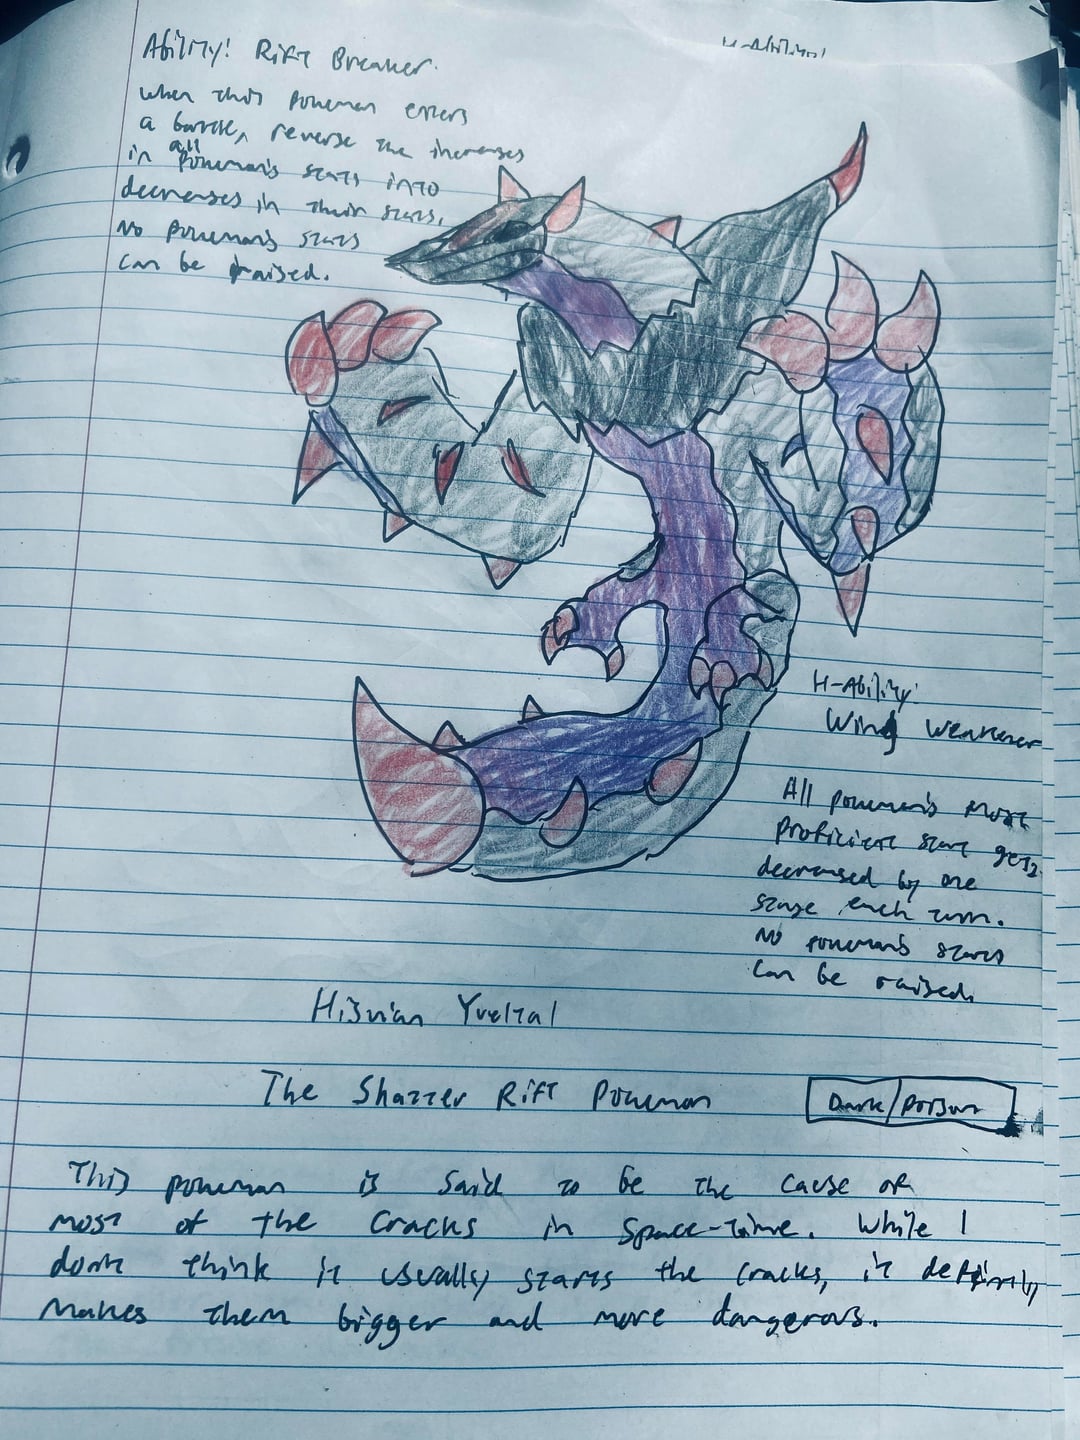 Ability: Rift Breaker.
When this pokemon enters
a battle, reverse the increases
in all pokemon's stats into
decreases in their stats.
No pokemon's stats
can be raised.
H-Ability!
H-Ability:
Wing Weakener
All pokemon's most
proficient stat gets
decreased by one
stage each turn.
No pokemon's stats
can be raised.
Hisuian Yveltal
The Shatter Rift Pokemon
Dark/Poison
This pokemon is said to be the cause of
most of the cracks in space-time. While I
dont think it usually starts the cracks, it definitly
makes them bigger and more dangerous.